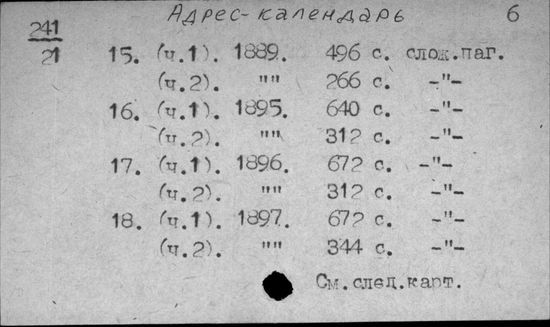 Адрес-календарь 6
241
21 15. (ч.1). 1889. 496 с. слож.паг.
(ч.2). "" 266 с. -"-
16. (ч.1). 1895. 640 с. -"-
(ч.2). "" 312 с. -"-
17. (ч.1). 1896. 672 с. -"-
(ч.2). "" 312 с. -"-
18. (ч.1). 1897. 672 с. -"-
(ч.2). "" 344 с. -"-
См.след.карт.